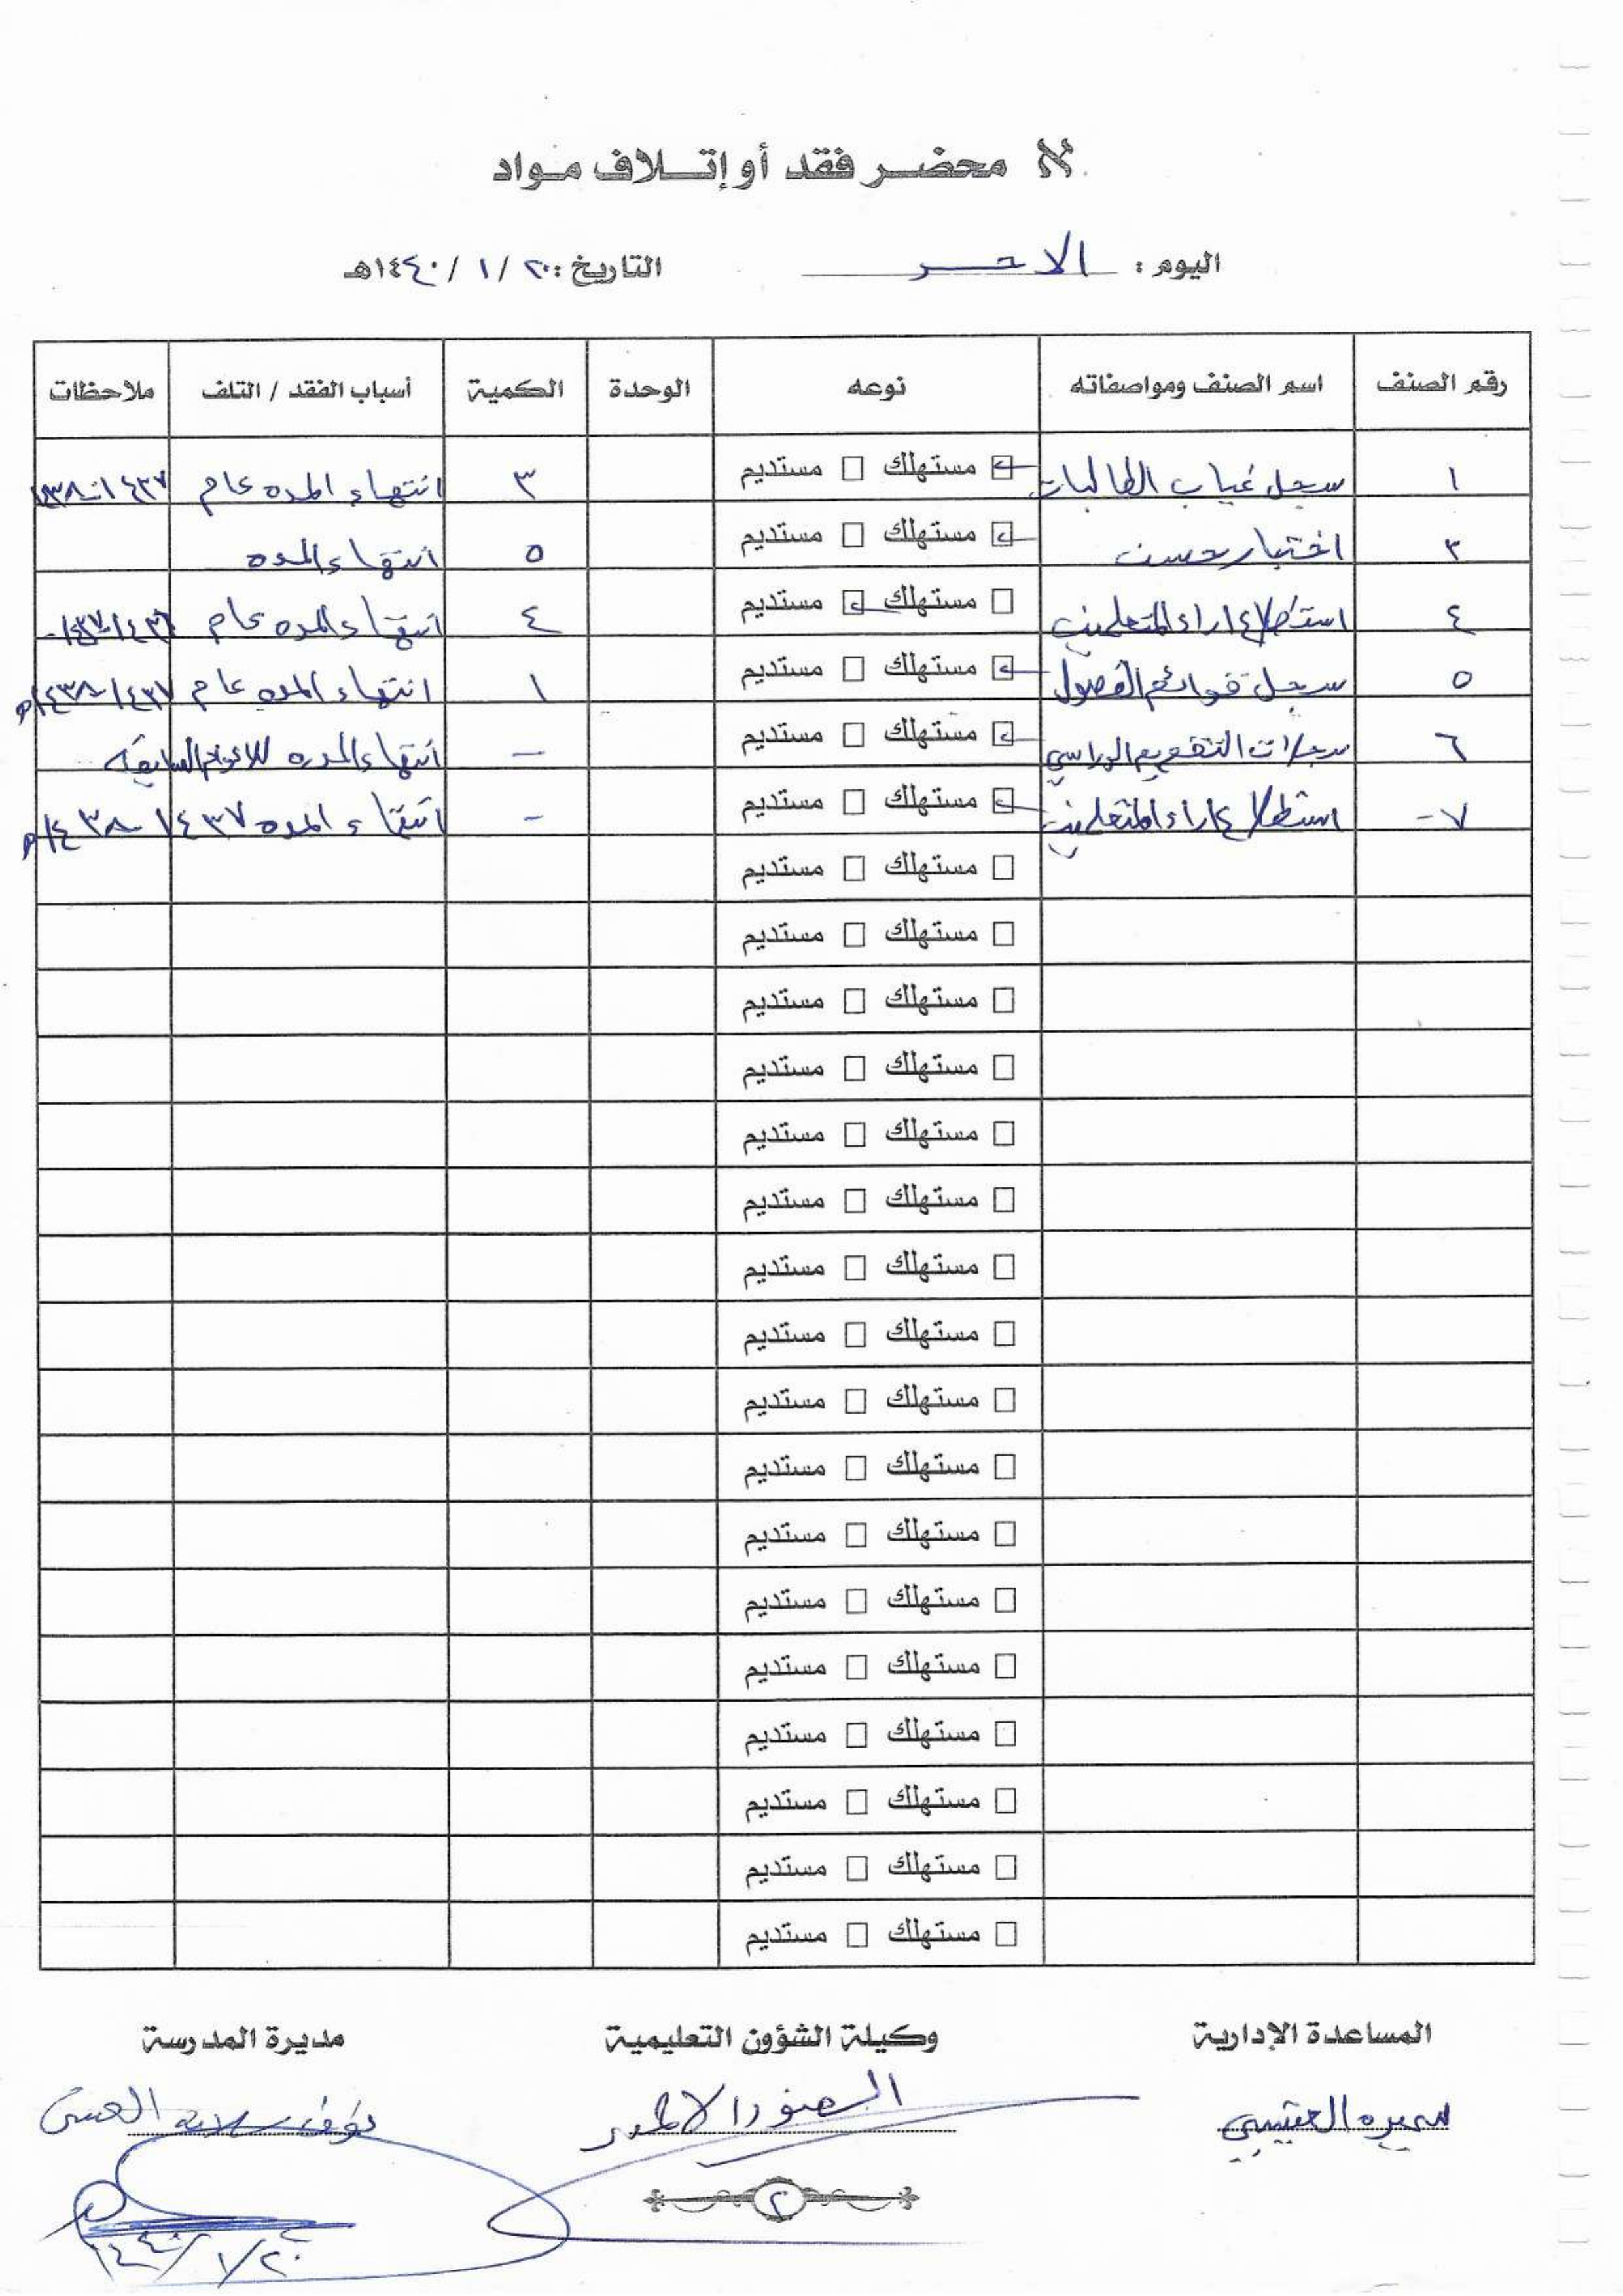 محضر فقد أو إتلاف مواد
اليوم : الاحد التاريخ : ٢٠ / ١ / ١٤٤٠هـ
رقم الصنف اسم الصنف ومواصفاته نوعه الوحدة الكمية أسباب الفقد / التلف ملاحظات
١ سجل غياب الطالبات ☑ مستهلك ☐ مستديم ٣ انتهاء المده عام ١٤٣٧-
٣ اختبار حسن ☑ مستهلك ☐ مستديم ٥ انتهاء المده
٤ استطلاع اراء المتعلمين ☐ مستهلك ☑ مستديم ٤ انتهاء المده عام
٥ سجل قوائم الفصول ☑ مستهلك ☐ مستديم ١ انتهاء المده عام ١٤٣٧-١٤٣٨هـ
٦ سجلات التقويم الدراسي ☑ مستهلك ☐ مستديم - انتهاء المده للاعوام السابقه
٧- استطلاع اراء المتعلمين ☑ مستهلك ☐ مستديم - انتهاء المده ١٤٣٧-١٤٣٨هـ
☐ مستهلك ☐ مستديم
☐ مستهلك ☐ مستديم
☐ مستهلك ☐ مستديم
☐ مستهلك ☐ مستديم
☐ مستهلك ☐ مستديم
☐ مستهلك ☐ مستديم
☐ مستهلك ☐ مستديم
☐ مستهلك ☐ مستديم
☐ مستهلك ☐ مستديم
☐ مستهلك ☐ مستديم
☐ مستهلك ☐ مستديم
☐ مستهلك ☐ مستديم
☐ مستهلك ☐ مستديم
☐ مستهلك ☐ مستديم
☐ مستهلك ☐ مستديم
☐ مستهلك ☐ مستديم
☐ مستهلك ☐ مستديم
المساعدة الإدارية وكيلة الشؤون التعليمية مديرة المدرسة
نوف
٢
١٤٤٠/١/٢٠